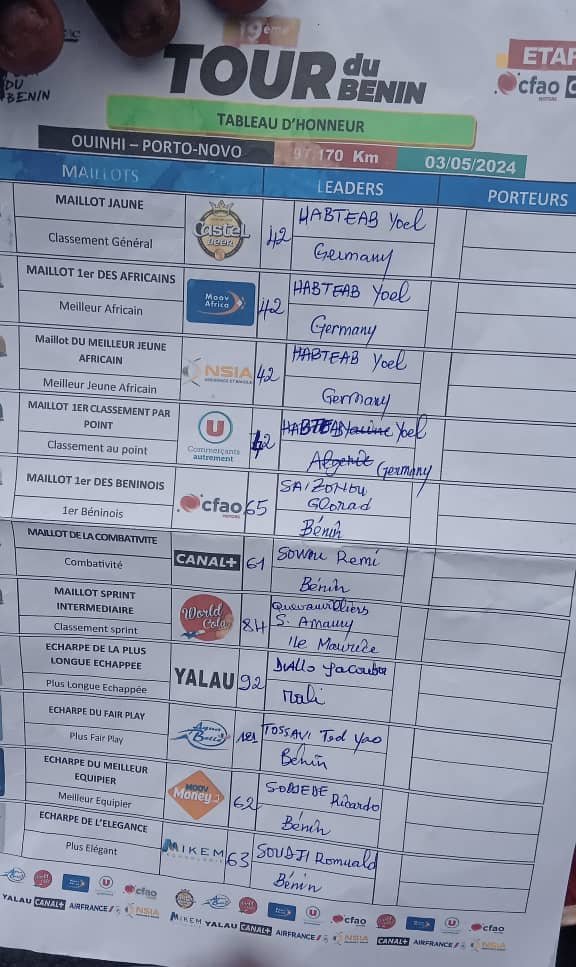 19ème
TOUR du BENIN
DU BENIN
ETAP
cfao
TABLEAU D'HONNEUR
OUINHI – PORTO-NOVO 97,170 Km 03/05/2024
MAILLOTS LEADERS PORTEURS
MAILLOT JAUNE Castel BEER 42 HABTEAB Yoel
Classement Général Germany
MAILLOT 1er DES AFRICAINS Moov Africa 42 HABTEAB Yoel
Meilleur Africain Germany
Maillot DU MEILLEUR JEUNE AFRICAIN NSIA 42 HABTEAB Yoel
Meilleur Jeune Africain Germany
MAILLOT 1ER CLASSEMENT PAR POINT U Commerçants autrement 42 HABTEAB Yoel
Classement au point Algerie Germany
MAILLOT 1er DES BENINOIS cfao 65 SAIZONOU Glorad
1er Béninois Bénin
MAILLOT DE LA COMBATIVITE CANAL+ 61 SOWOU Remi
Combativité Bénin
MAILLOT SPRINT INTERMEDIAIRE World Cola 84 Quevauvilliers S. Amaury
Classement sprint Ile Maurice
ECHARPE DE LA PLUS LONGUE ECHAPPEE YALAU 92 Diallo Yacouba
Plus Longue Echappée Mali
ECHARPE DU FAIR PLAY Aqua Belle TOSSAVI Ted Yao
Plus Fair Play Bénin
ECHARPE DU MEILLEUR EQUIPIER MOOV Money 62 SODEDE Ricardo
Meilleur Equipier Bénin
ECHARPE DE L'ELEGANCE MIKEM 63 SOUDJI Romuald
Plus Elégant Bénin
cfao U cfao U cfao
YALAU CANAL+ AIRFRANCE NSIA MIKEM YALAU CANAL+ AIRFRANCE NSIA CANAL+ AIRFRANCE NSIA